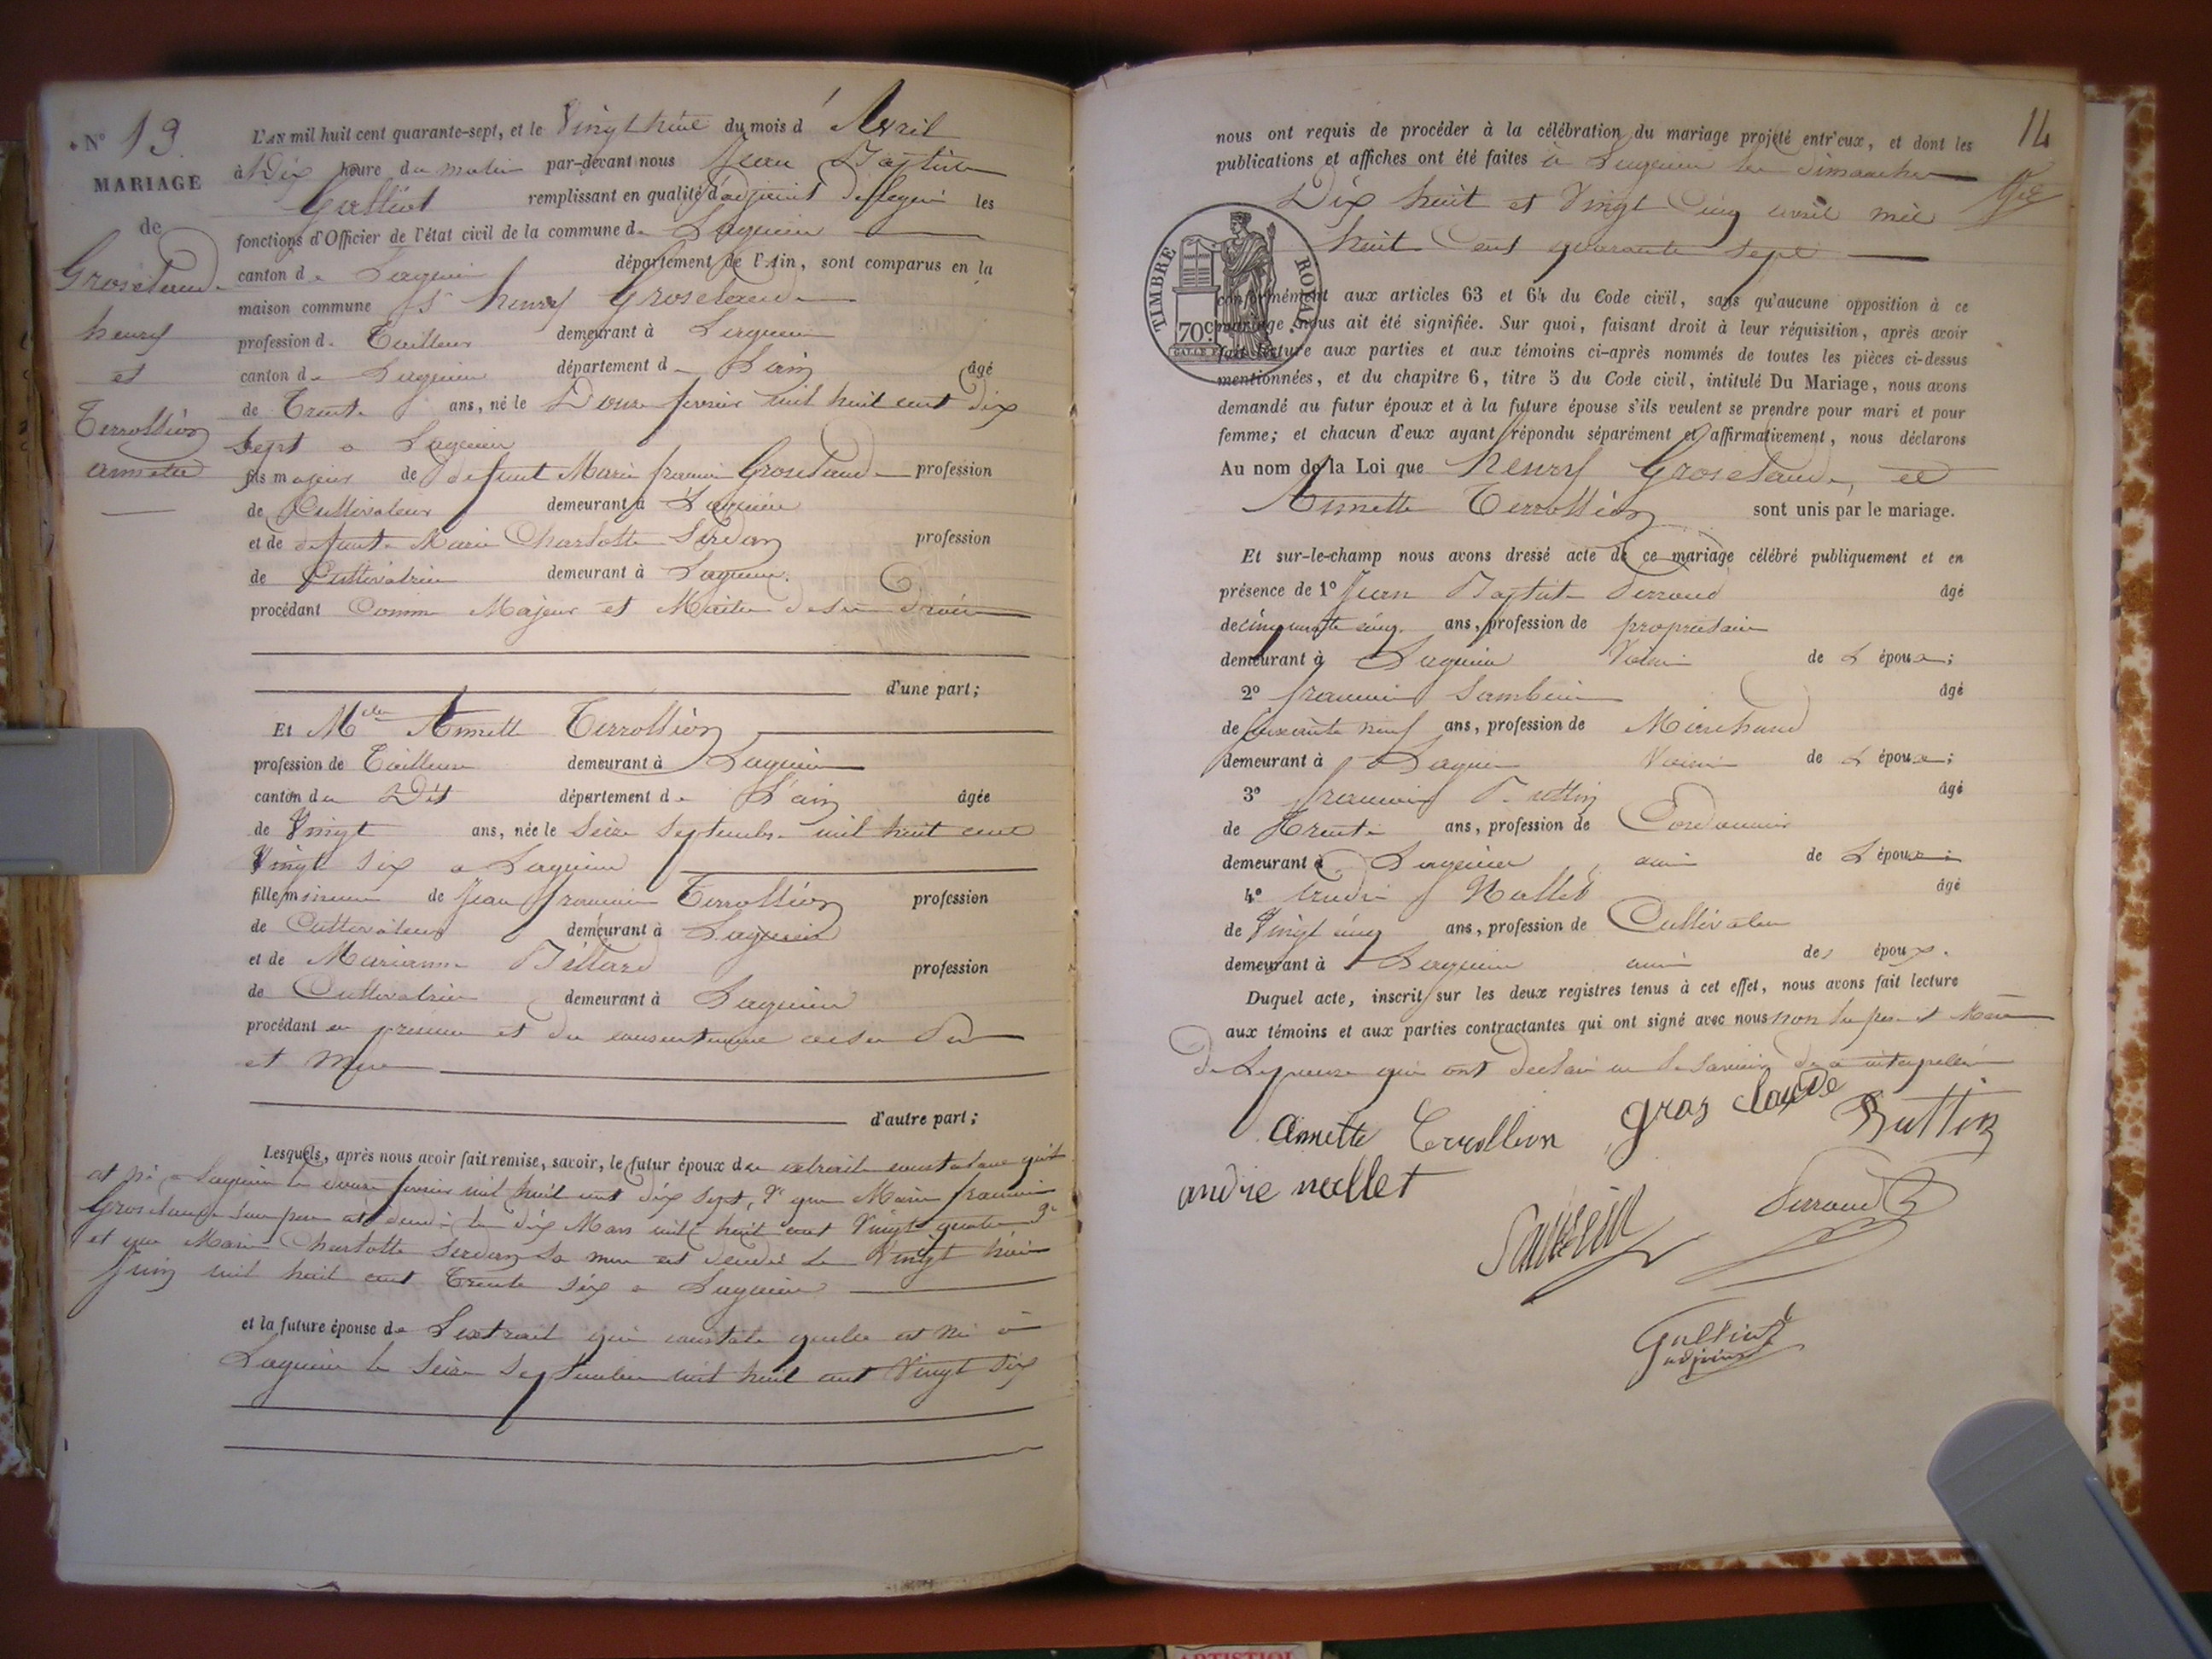 N° 13.
MARIAGE
de
Grosclaude
henry
et
Terrollion
annette
L'AN mil huit cent quarante-sept, et le Vingt huit du mois d' Avril
à Dix heure du matin par-devant nous Jean Baptiste
Gulliot remplissant en qualité d'adjoint les
fonctions d'Officier de l'état civil de la commune de Lagnieu
canton de Lagnieu département de l'Ain, sont comparus en la
maison commune Sr henry Grosclaude
profession de Tailleur demeurant à Lagnieu
canton de Lagnieu département de L'ain âgé
de Trente ans, né le Douze fevrier mil huit cent dix
Sept a Lagnieu
fils majeur de defunt Marie francois Grosclaude profession
de Cultivateur demeurant à Lagnieu
et de defunte Marie Charlotte Serdan profession
de Cultivatrice demeurant à Lagnieu.
procédant Comme Majeur et Maitre de ses droits
d'une part;
Et Mlle Annette Terrollion
profession de Tailleuse demeurant à Lagnieu
canton du Dit département de L'ain âgée
de Vingt ans, née le Seize Septembre mil huit cent
Vingt Six a Lagnieu
fille mineure de Jean francois Terrollion profession
de Cultivateur demeurant à Lagnieu
et de Marianne Billard profession
de Cultivatrice demeurant à Lagnieu
procédant en presence et du consentement de ses Pere
et Mere
d'autre part;
Lesquels, après nous avoir fait remise, savoir, le futur époux de extrait constatant quil
est né a Lagnieu le douze fevrier mil huit cent dix Sept, 2e que Marie francois
Grosclaude son pere est decedé le dix Mars mil huit cent Vingt quatre 3e
et que Marie Charlotte Serdan Sa mere est decedé le Vingt huit
Juin mil huit cent Trente Six a Lagnieu
et la future épouse de L'extrait qui constate quelle est né à
Lagnieu le Seize Septembre mil huit cent Vingt Six
14
nous ont requis de procéder à la célébration du mariage projeté entr'eux, et dont les
publications et affiches ont été faites à Lagnieu les dimanches
Dix huit et Vingt Cinq avril mil
huit Cent quarante Sept
TIMBRE ROYAL.
70 c
conformément aux articles 63 et 64 du Code civil, sans qu'aucune opposition à ce
mariage nous ait été signifiée. Sur quoi, faisant droit à leur réquisition, après avoir
fait lecture aux parties et aux témoins ci-après nommés de toutes les pièces ci-dessus
mentionnées, et du chapitre 6, titre 5 du Code civil, intitulé Du Mariage, nous avons
demandé au futur époux et à la future épouse s'ils veulent se prendre pour mari et pour
femme; et chacun d'eux ayant répondu séparément et affirmativement, nous déclarons
Au nom de la Loi que henry Grosclaude, et
Annette Terrollion sont unis par le mariage.
Et sur-le-champ nous avons dressé acte de ce mariage célébré publiquement et en
présence de 1° Jean Baptiste Perroud âgé
de cinquante cinq ans, profession de propriétaire
demeurant à Lagnieu Voisin de L époux;
2° francois âgé
de Soixante neuf ans, profession de Marchand
demeurant à Lagnieu Voisin de L époux;
3° francois Ruttin âgé
de Trente ans, profession de Cordonnier
demeurant à Lagnieu ami de L époux;
4° andré Nallet âgé
de Vingt cinq ans, profession de Cultivateur
demeurant à Lagnieu ami des époux.
Duquel acte, inscrit sur les deux registres tenus à cet effet, nous avons fait lecture
aux témoins et aux parties contractantes qui ont signé avec nous non les pere et Mere
de Lepouse qui ont declaré ne le Savoir de ce interpellé
annette Terrollion gros claude Ruttin
andre nallet
Perroud
Gulliot
adjoint